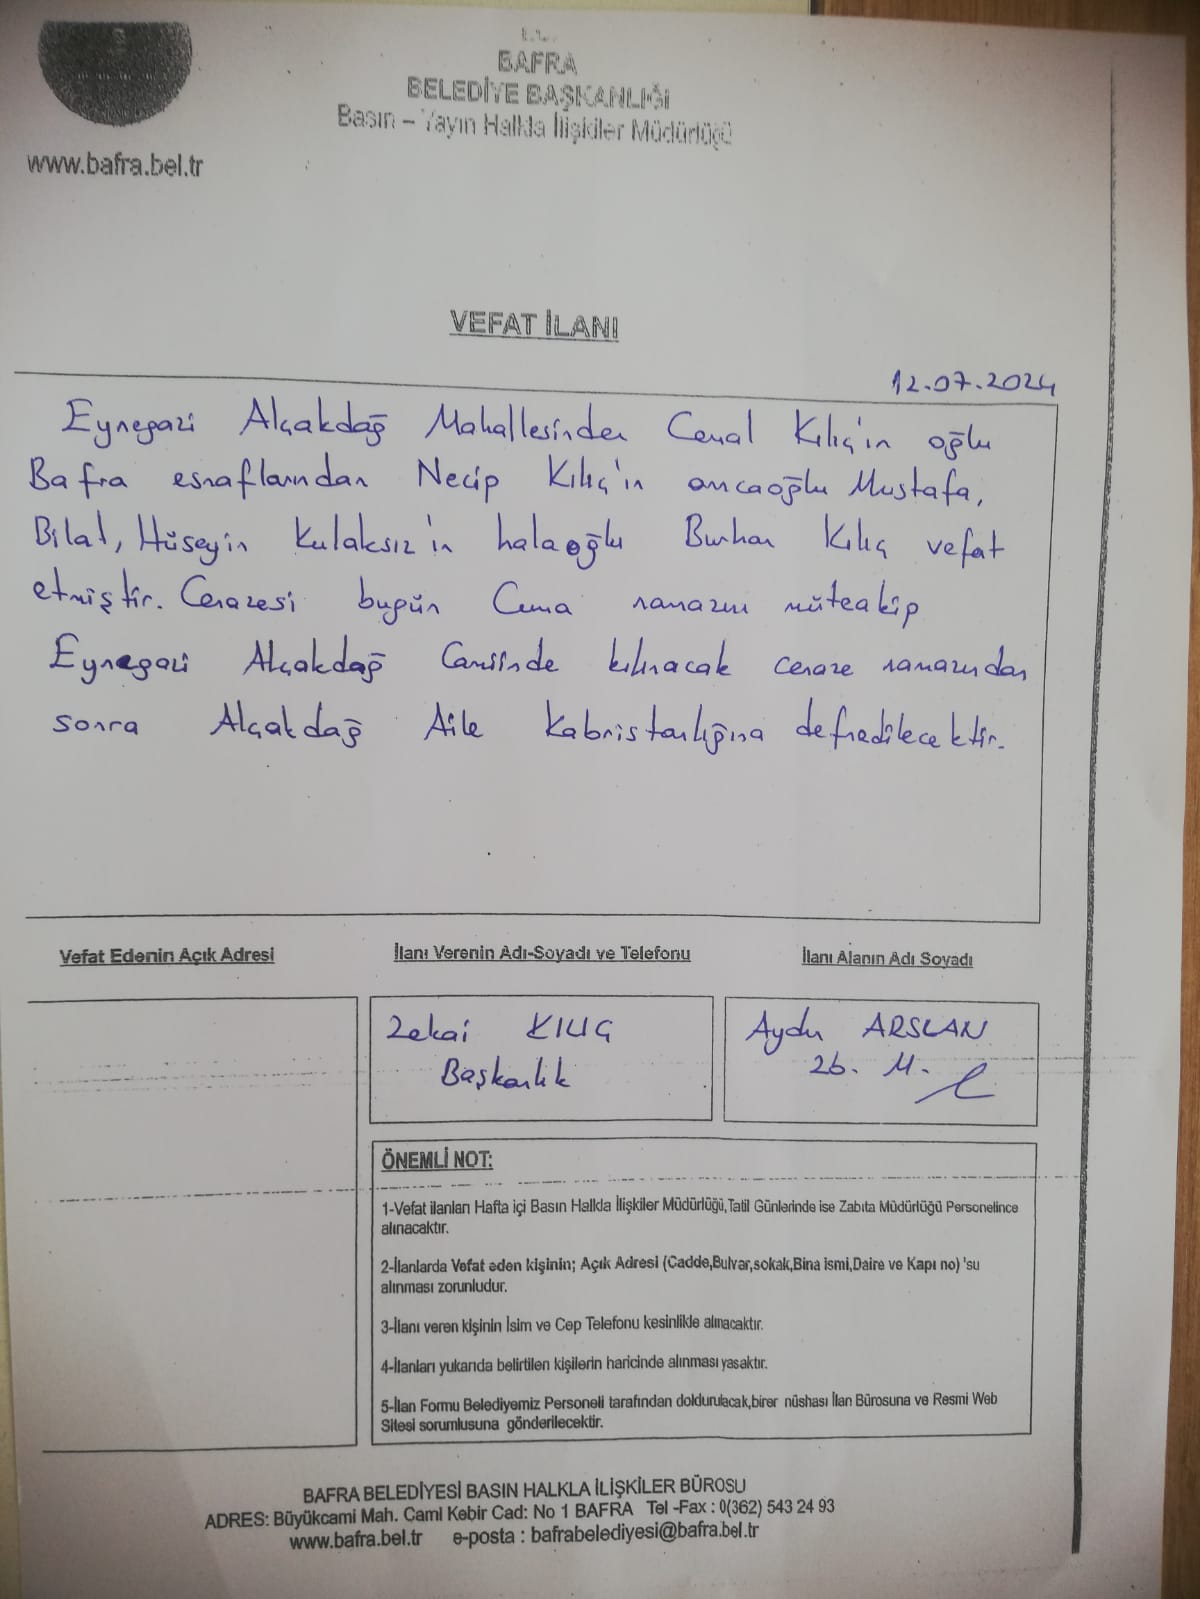 BAFRA
BELEDİYE BAŞKANLIĞI
Basın – Yayın Halkla İlişkiler Müdürlüğü
www.bafra.bel.tr
VEFAT İLANI
12.07.2024
Eynegazi Alçakdağ Mahallesinden Cemal Kılıç'ın oğlu
Bafra esnaflarından Necip Kılıç'ın amcaoğlu Mustafa,
Bilal, Hüseyin Kulaksız'ın halaoğlu Burhan Kılıç vefat
etmiştir. Cenazesi bugün Cuma namazını müteakip
Eynegazi Alçakdağ Camiinde kılınacak cenaze namazından
sonra Alçakdağ Aile Kabristanlığına defnedilecektir.
Vefat Edenin Açık Adresi
İlanı Verenin Adı-Soyadı ve Telefonu
İlanı Alanın Adı Soyadı
Zekai KILIÇ
Başkanlık
Aydın ARSLAN
Zb. M.
ÖNEMLİ NOT:
1-Vefat ilanları Hafta içi Basın Halkla İlişkiler Müdürlüğü,Tatil Günlerinde ise Zabıta Müdürlüğü Personelince
alınacaktır.
2-İlanlarda Vefat eden kişinin; Açık Adresi (Cadde,Bulvar,sokak,Bina ismi,Daire ve Kapı no) 'su
alınması zorunludur.
3-İlanı veren kişinin İsim ve Cep Telefonu kesinlikle alınacaktır.
4-İlanları yukarıda belirtilen kişilerin haricinde alınması yasaktır.
5-İlan Formu Belediyemiz Personeli tarafından doldurulacak,birer nüshası İlan Bürosuna ve Resmi Web
Sitesi sorumlusuna gönderilecektir.
BAFRA BELEDİYESİ BASIN HALKLA İLİŞKİLER BÜROSU
ADRES: Büyükcami Mah. Cami Kebir Cad: No 1 BAFRA Tel -Fax : 0(362) 543 24 93
www.bafra.bel.tr e-posta : bafrabelediyesi@bafra.bel.tr